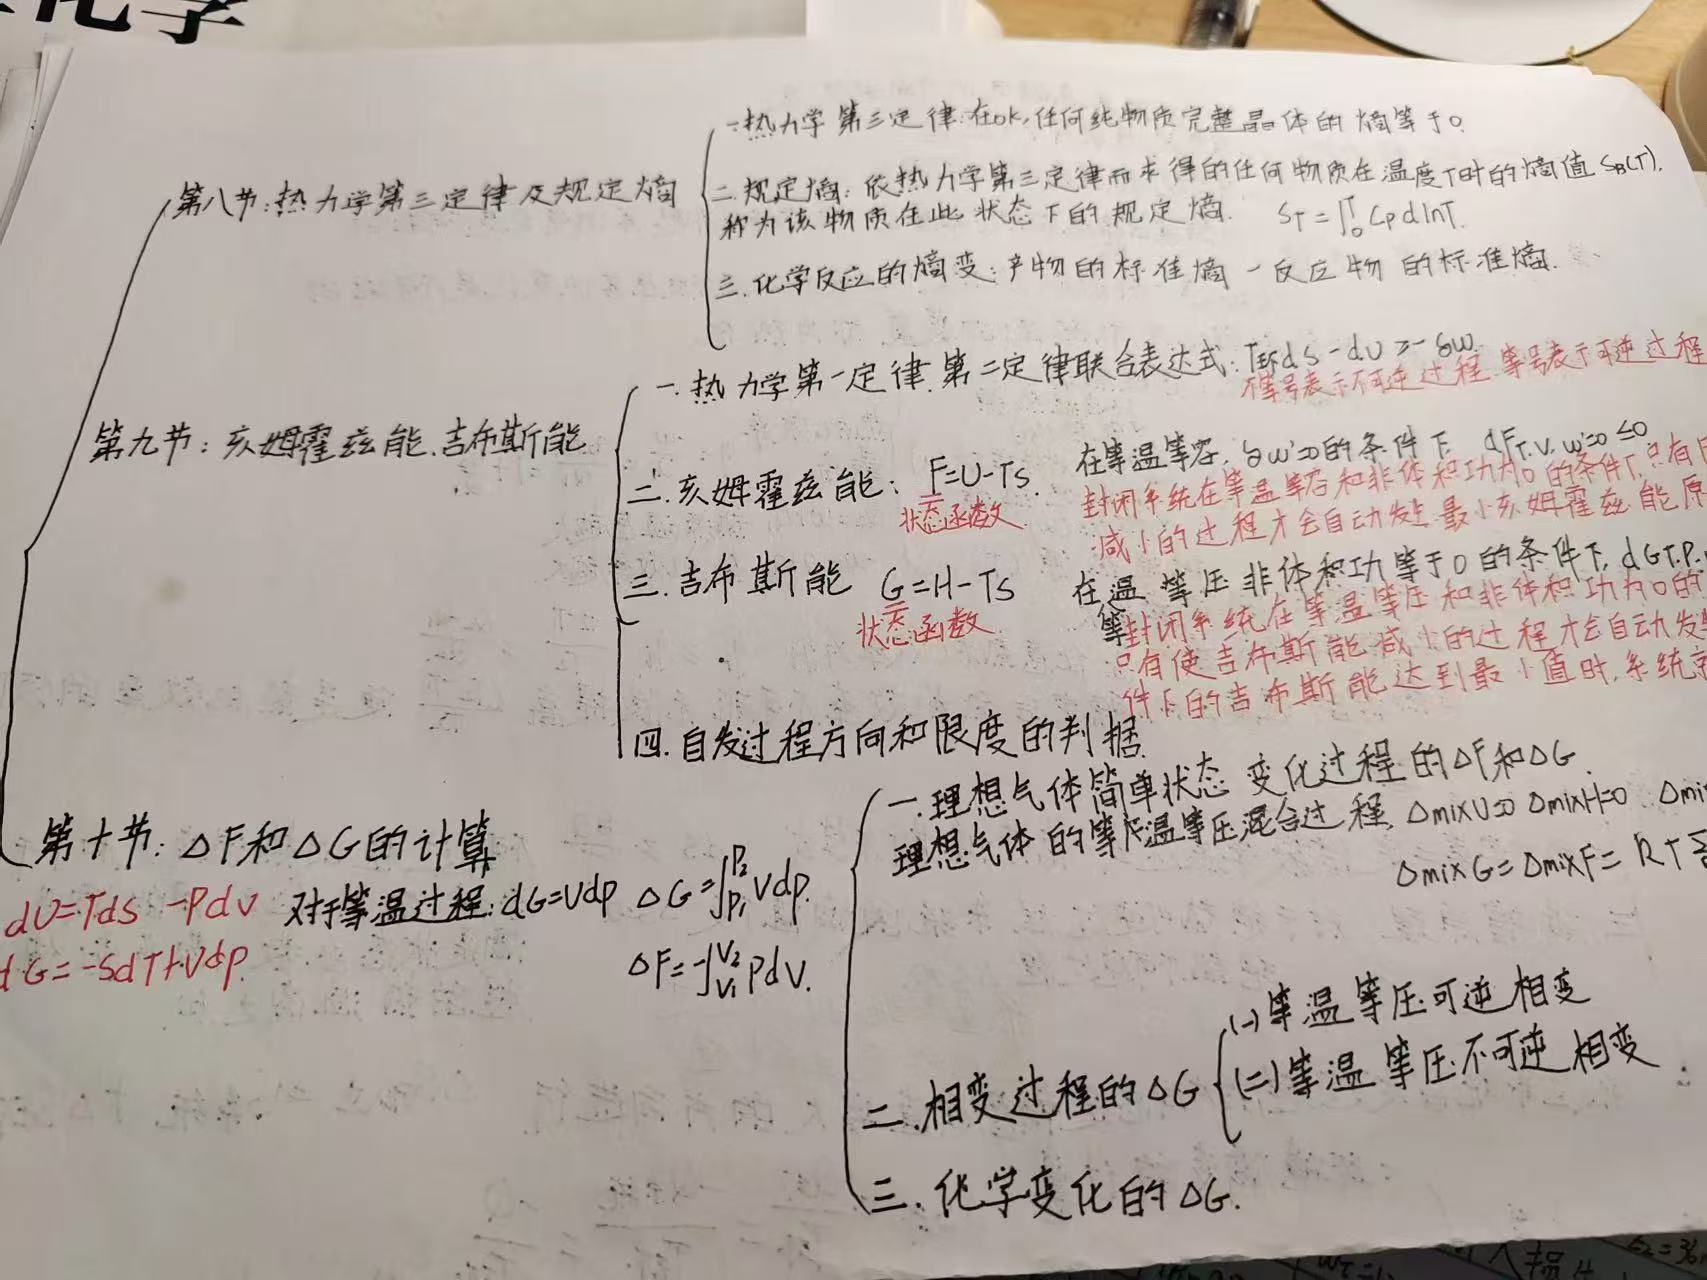 化学
第八节:热力学第三定律及规定熵
一.热力学第三定律:在0K,任何纯物质完整晶体的熵等于0.
二.规定熵:依热力学第三定律而求得的任何物质在温度T时的熵值SB(T),
称为该物质在此状态下的规定熵. ST=∫₀ᵀ CpdlnT.
三.化学反应的熵变:产物的标准熵-反应物的标准熵.
第九节:亥姆霍兹能.吉布斯能
一.热力学第一定律.第二定律联合表达式:T环dS-dU≥-δW.
不等号表示不可逆过程.等号表示可逆过程
二.亥姆霍兹能: F=U-TS.
状态函数
在等温等容.δW'=0的条件下. dFT.V.W'=0≤0
封闭系统在等温等容和非体积功为0的条件下.只有
减小的过程才会自动发生.最小亥姆霍兹能原
三.吉布斯能 G=H-TS
状态函数
在等温等压非体积功等于0的条件下,dGT.P.
封闭系统在等温等压和非体积功为0的
只有使吉布斯能减小的过程才会自动发生
件下的吉布斯能达到最小值时,系统
四.自发过程方向和限度的判据.
第十节:△F和△G的计算
dU=TdS-PdV
dG=-SdT+Vdp.
对于等温过程:dG=Vdp △G=∫P₁P₂ Vdp.
△F=-∫V₁V₂ PdV.
一.理想气体简单状态变化过程的△F和△G.
理想气体的等温等压混合过程,△mixU=0 △mixH=0 △mi
△mixG=△mixF=RT
二.相变过程的△G
(一)等温等压可逆相变
(二)等温等压不可逆相变
三.化学变化的△G.